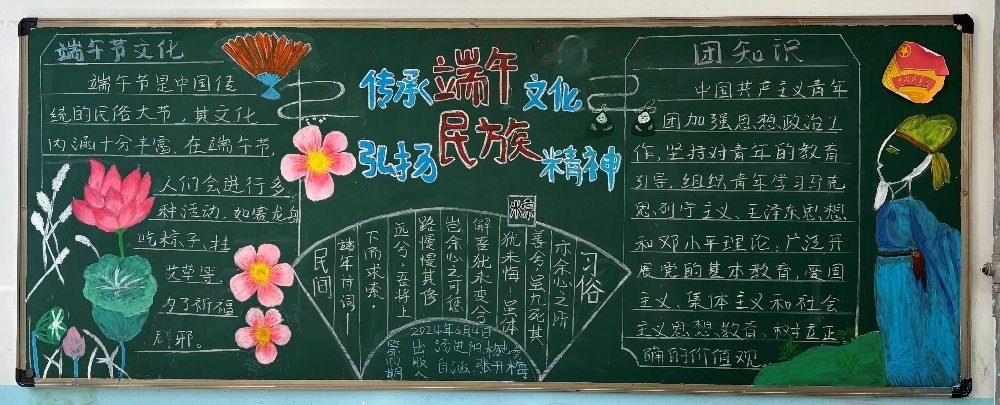 端午节文化
端午节是中国传
统的民俗大节，其文化
内涵十分丰富，在端午节，
人们会进行多
种活动，如赛龙舟
吃粽子、挂
艾草等，
为了祈福
辟邪。
传承端午文化
弘扬民族精神
粽
习俗
亦余心之所
善兮，虽九死其
犹未悔，虽体
解吾犹未变兮
岂余心之可惩
路慢慢其修
远兮，吾将上
下而求索。
端午诗词
民间
2024年6月4日
第四期
出版人
团知识
中国共产主义青年
团加强思想政治工
作，坚持对青年的教育
引导，组织青年学习马克
思、列宁主义、毛泽东思想，
和邓小平理论，广泛开
展党的基本教育，爱国
主义、集体主义和社会
主义思想教育，树立正
确的价值观。